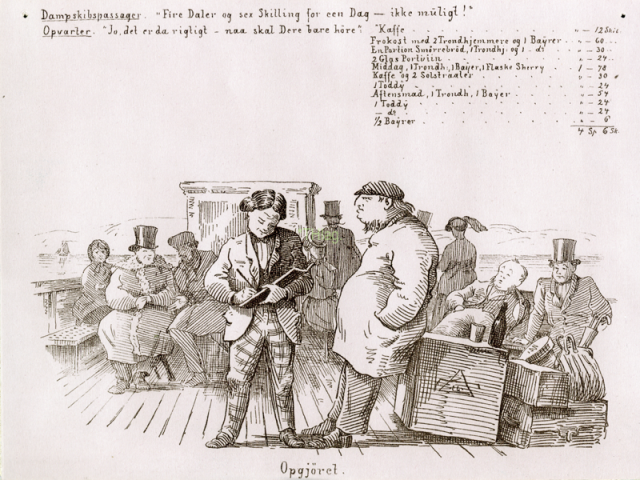 Dampskibspassager. "Fire Daler og sex Skilling for een Dag — ikke muligt!"
Opvarter. "Jo, det er da rigtigt – naa skal Dere bare höre".
"Kaffe . . . „ – 12 Skil.
Frokost med 2 Trondhjemmere og 1 Baÿrer . „ – 60 ...
En Portion Smörrebröd, 1 Trondhj. og 1 – di „ – 30 ..
2 Glas Portviin . . . „ – 24 ..
Middag, 1 Trondh., 1 Baÿer, 1 Flaske Sherry . 1 – 78
Kaffe og 2 Solstraaler . . . „ – 30
1 Toddÿ . . . „ – 24
Aftensmad, 1 Trondh, 1 Baÿer . . . „ – 54
1 Toddÿ . . . „ – 24
– di . . . „ – 24
1/2 Baÿrer . . . „ – 6
4 Sp. 6 Sk.
Opgjöret.